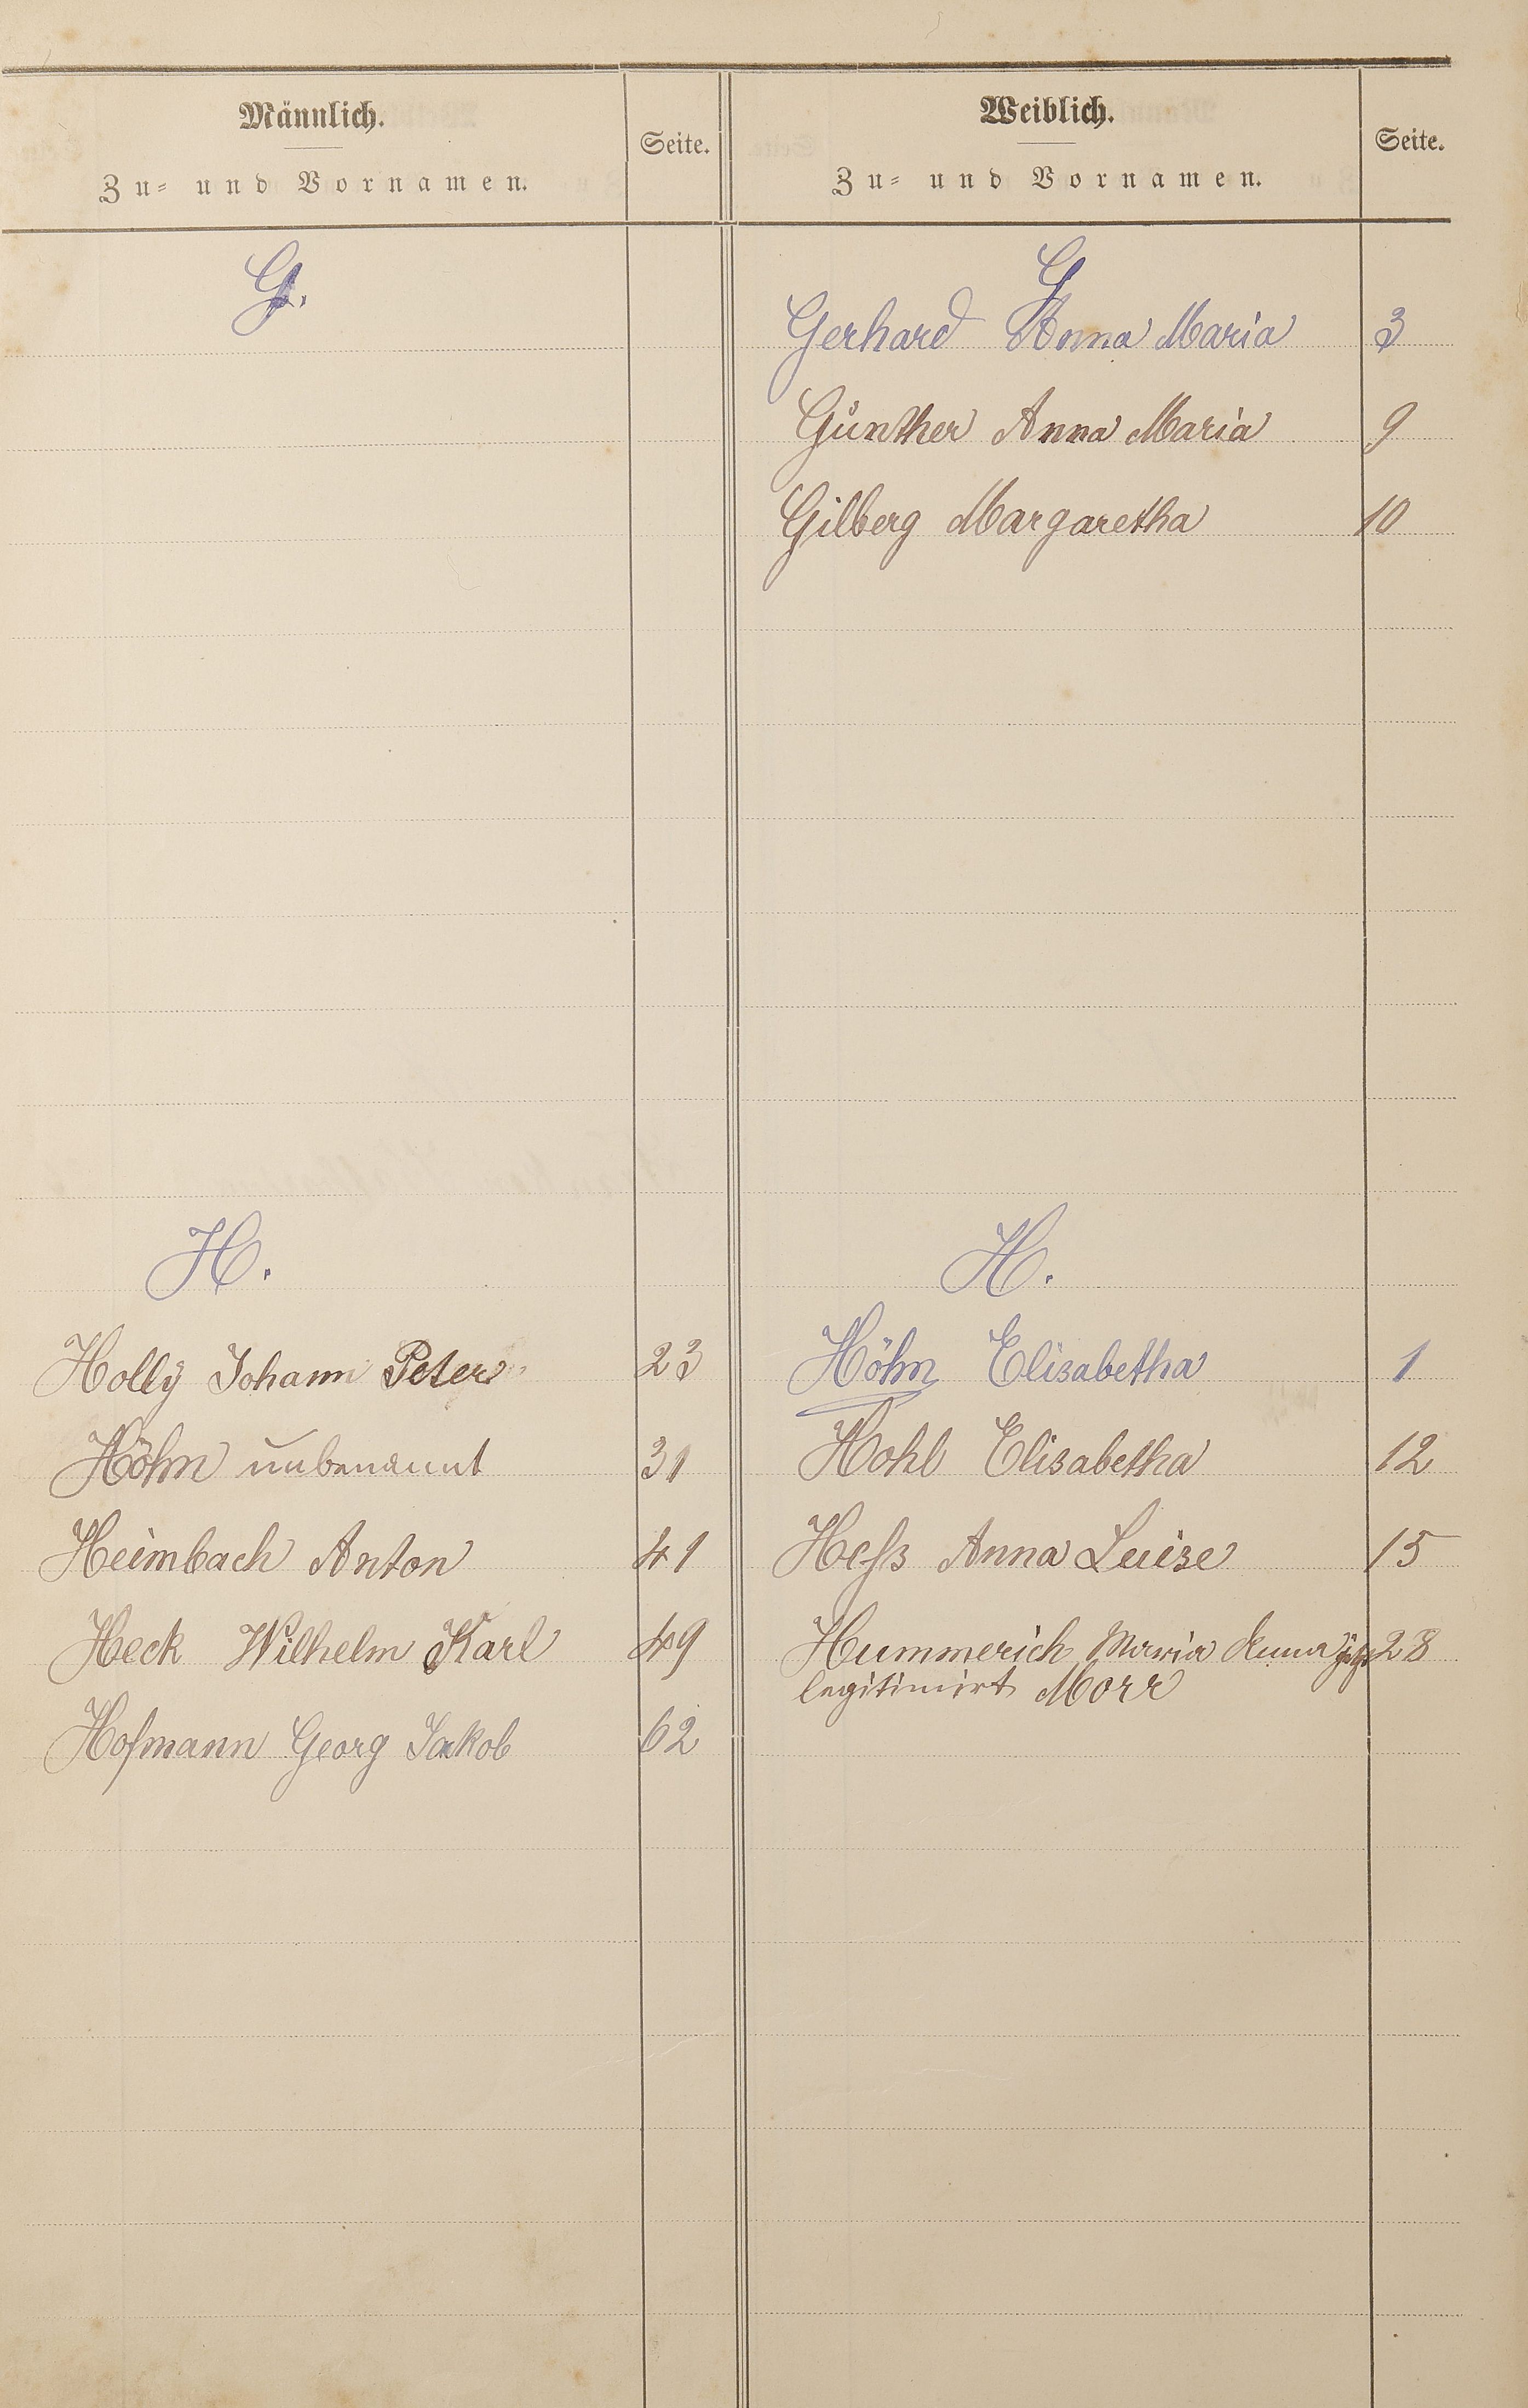 Männlich.
Zu- und Vornamen.
Seite.
Weiblich.
Zu- und Vornamen.
Seite.
G.
G
Gerhard Anna Maria 3
Günther Anna Maria 9
Gilberg Margaretha 10
H.
Holly Johann Peter 23
Höhn unbenannt 31
Heimbach Anton 41
Heck Wilhelm Karl 49
Hofmann Georg Jakob 62
H.
Höhn Elisabetha 1
Hohl Elisabetha 12
Heſs Anna Luise 15
Hummerich Maria Anna 28
legitimirt Morr